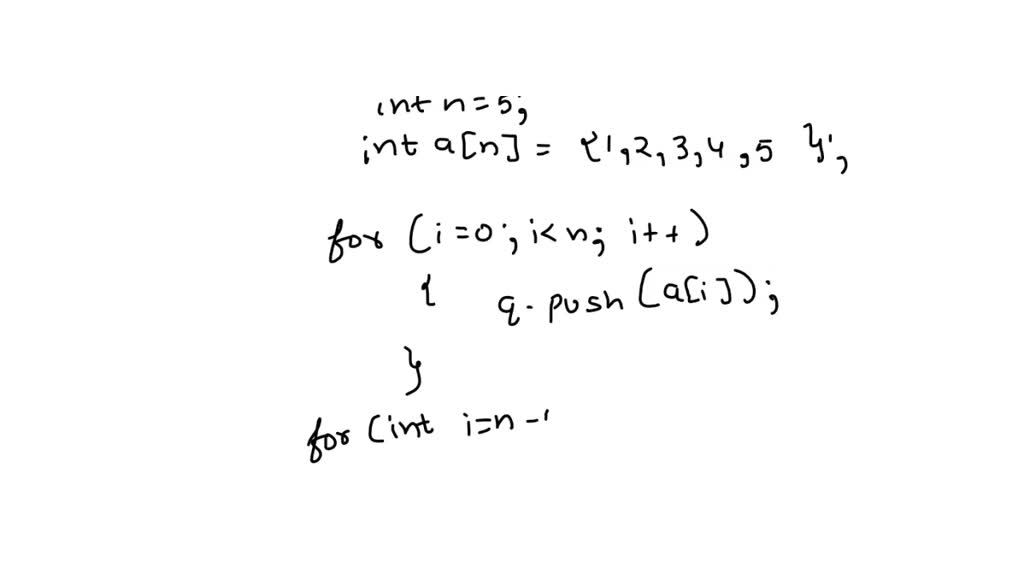 int n=5;
int a[n] = {1,2,3,4,5 };
for (i=0; i<n; i++)
{ q.push(a[i]);
}
for (int i=n-1